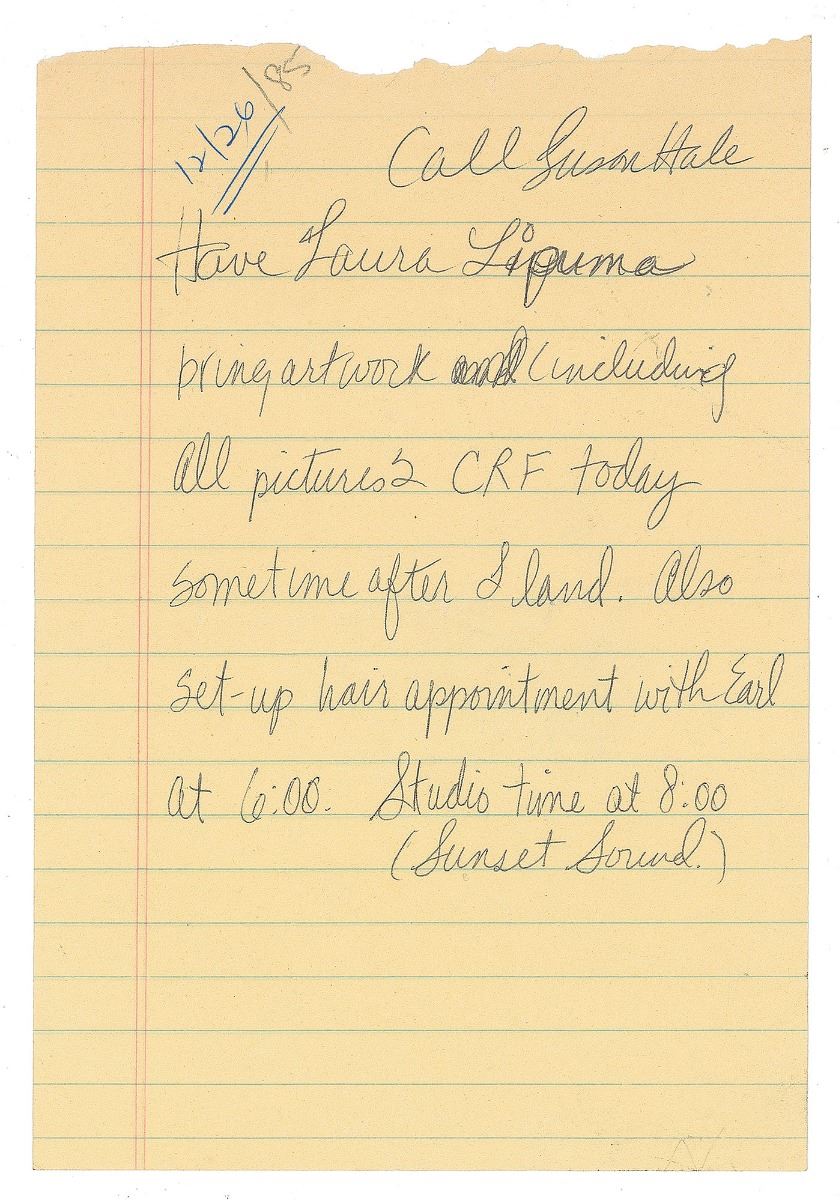 12/26/85
Call Susan Hale
Have Laura Lipuma
bring artwork (including
all pictures 2 CRF today
sometime after I land. Also
set-up hair appointment with Earl
at 6:00. Studio time at 8:00
(Sunset Sound.)